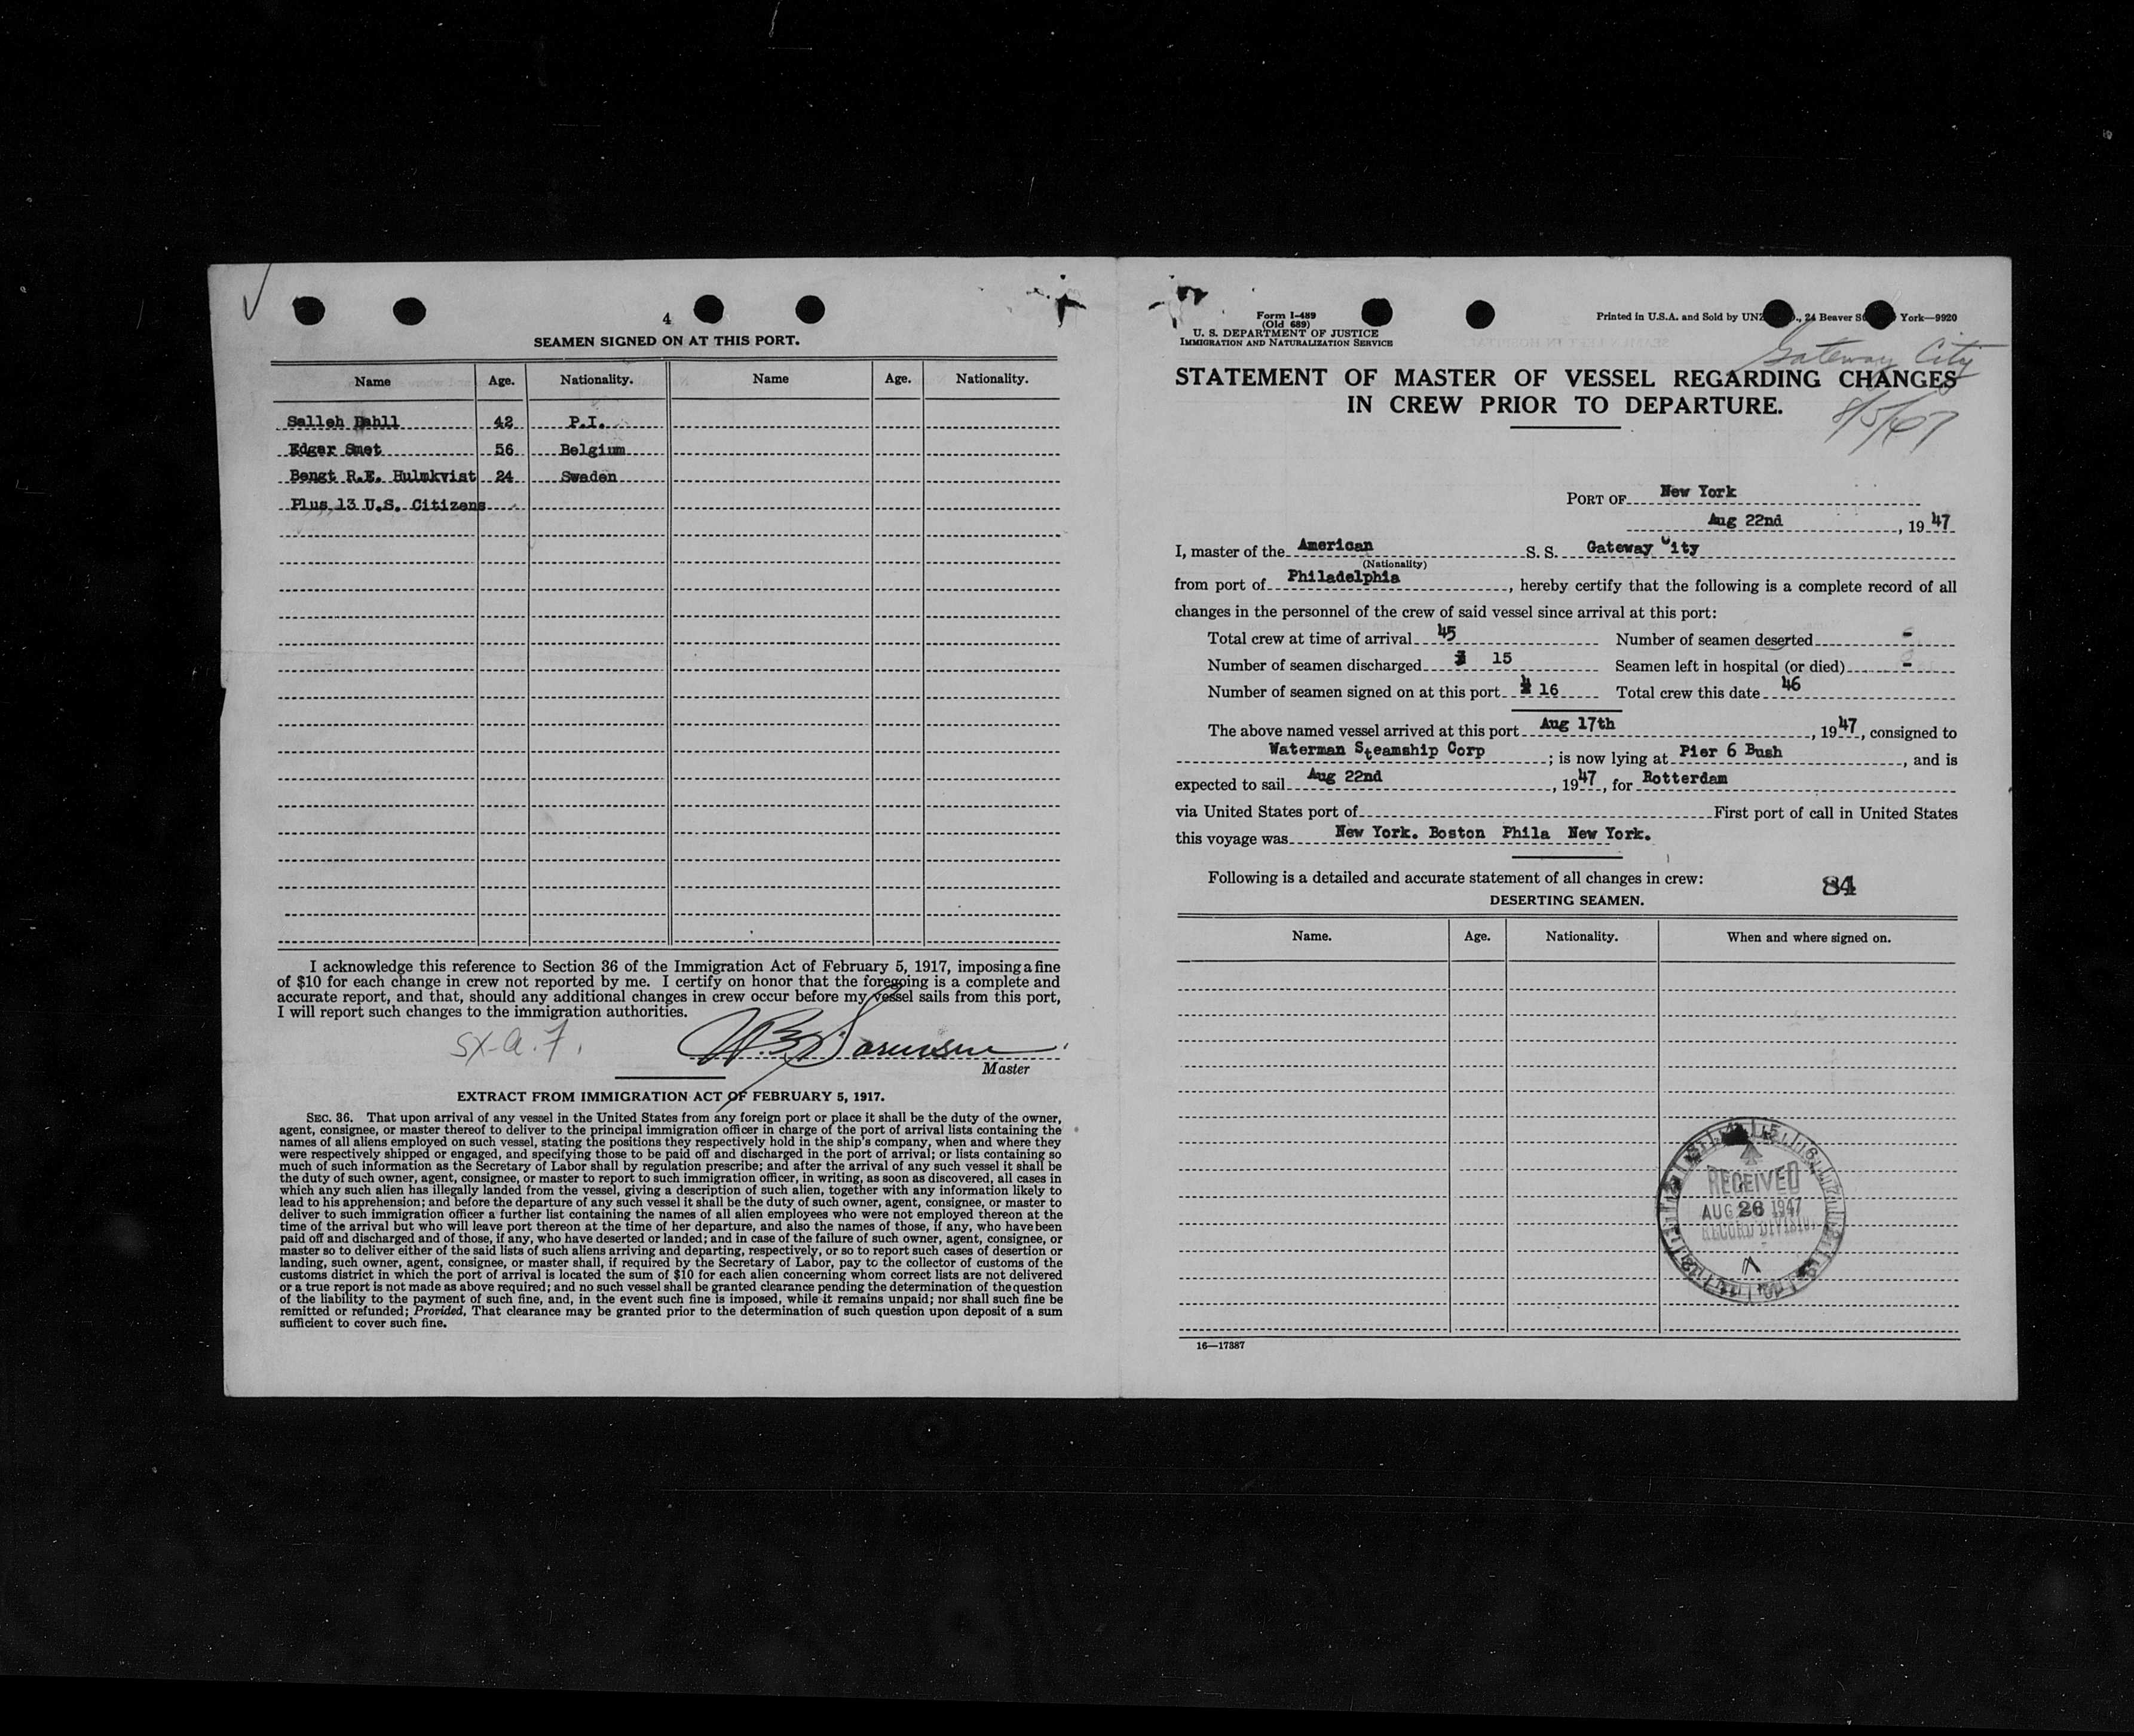 4
SEAMEN SIGNED ON AT THIS PORT.
Name Age. Nationality. Name Age. Nationality.
Salleh Dahll 42 P.I.
Edgar Smet 56 Belgium
Bengt R.E. Hulmkvist 24 Sweden
Plus 13 U.S. Citizens
I acknowledge this reference to Section 36 of the Immigration Act of February 5, 1917, imposing a fine
of $10 for each change in crew not reported by me. I certify on honor that the foregoing is a complete and
accurate report, and that, should any additional changes in crew occur before my vessel sails from this port,
I will report such changes to the immigration authorities.
Sorensen
Master
EXTRACT FROM IMMIGRATION ACT OF FEBRUARY 5, 1917.
SEC. 36. That upon arrival of any vessel in the United States from any foreign port or place it shall be the duty of the owner,
agent, consignee, or master thereof to deliver to the principal immigration officer in charge of the port of arrival lists containing the
names of all aliens employed on such vessel, stating the positions they respectively hold in the ship's company, when and where they
were respectively shipped or engaged, and specifying those to be paid off and discharged in the port of arrival; or lists containing so
much of such information as the Secretary of Labor shall by regulation prescribe; and after the arrival of any such vessel it shall be
the duty of such owner, agent, consignee, or master to report to such immigration officer, in writing, as soon as discovered, all cases in
which any such alien has illegally landed from the vessel, giving a description of such alien, together with any information likely to
lead to his apprehension; and before the departure of any such vessel it shall be the duty of such owner, agent, consignee, or master to
deliver to such immigration officer a further list containing the names of all alien employees who were not employed thereon at the
time of the arrival but who will leave port thereon at the time of her departure, and also the names of those, if any, who have been
paid off and discharged and of those, if any, who have deserted or landed; and in case of the failure of such owner, agent, consignee, or
master so to deliver either of the said lists of such aliens arriving and departing, respectively, or so to report such cases of desertion or
landing, such owner, agent, consignee, or master shall, if required by the Secretary of Labor, pay to the collector of customs of the
customs district in which the port of arrival is located the sum of $10 for each alien concerning whom correct lists are not delivered
or a true report is not made as above required; and no such vessel shall be granted clearance pending the determination of the question
of the liability to the payment of such fine, and, in the event such fine is imposed, while it remains unpaid; nor shall such fine be
remitted or refunded; Provided, That clearance may be granted prior to the determination of such question upon deposit of a sum
sufficient to cover such fine.
Form I-489
(Old 689)
U. S. DEPARTMENT OF JUSTICE
IMMIGRATION AND NATURALIZATION SERVICE
Printed in U.S.A. and Sold by UNZ ., 24 Beaver York—9920
Gateway City
STATEMENT OF MASTER OF VESSEL REGARDING CHANGES
IN CREW PRIOR TO DEPARTURE.
PORT OF New York
Aug 22nd, 1947
I, master of the American S. S. Gateway City
(Nationality)
from port of Philadelphia, hereby certify that the following is a complete record of all
changes in the personnel of the crew of said vessel since arrival at this port:
Total crew at time of arrival 45 Number of seamen deserted -
Number of seamen discharged 15 Seamen left in hospital (or died) -
Number of seamen signed on at this port 16 Total crew this date 46
The above named vessel arrived at this port Aug 17th, 1947, consigned to
Waterman Steamship Corp; is now lying at Pier 6 Bush, and is
expected to sail Aug 22nd, 1947, for Rotterdam
via United States port of First port of call in United States
this voyage was New York. Boston Phila New York.
Following is a detailed and accurate statement of all changes in crew:
84
DESERTING SEAMEN.
Name. Age. Nationality. When and where signed on.
RECEIVED
AUG 26 1947
RECORD DIVISION
16—17387